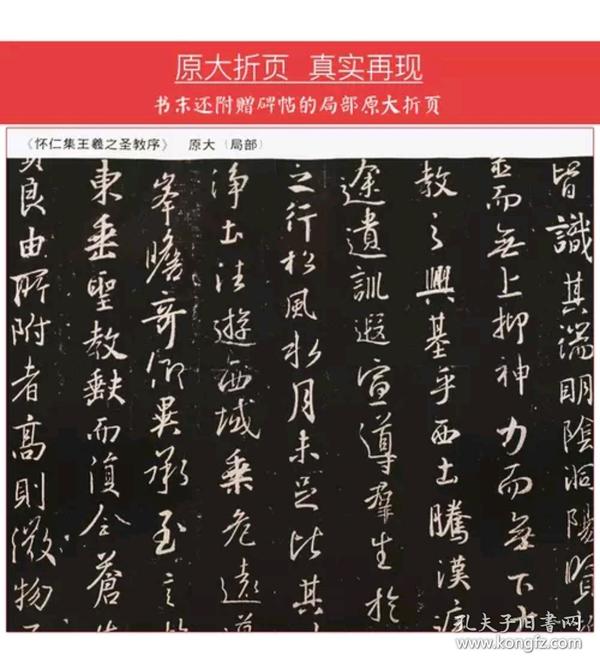 原大折页 真实再现
书末还附赠碑帖的局部原大折页
《怀仁集王羲之圣教序》 原大（局部）
皆識其端明陰洞陽賢
而無上抑神力而無下大
教之興基乎西土騰漢庭
途遺訓遐宣導羣生於
之行松風水月未足比其
淨土法遊西域乘危遠邁
峯瞻奇仰異承至言於
東垂聖教缺而復全蒼生
良由所附者高則微物不
孔夫子旧书网
www.kongfz.com